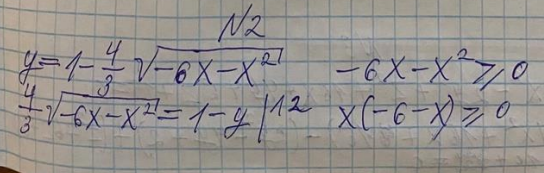 N2
y = 1 - 4/3 √(-6x - x²)    -6x - x² ≥ 0
4/3 √(-6x - x²) = 1 - y |↑2    x(-6 - x) ≥ 0